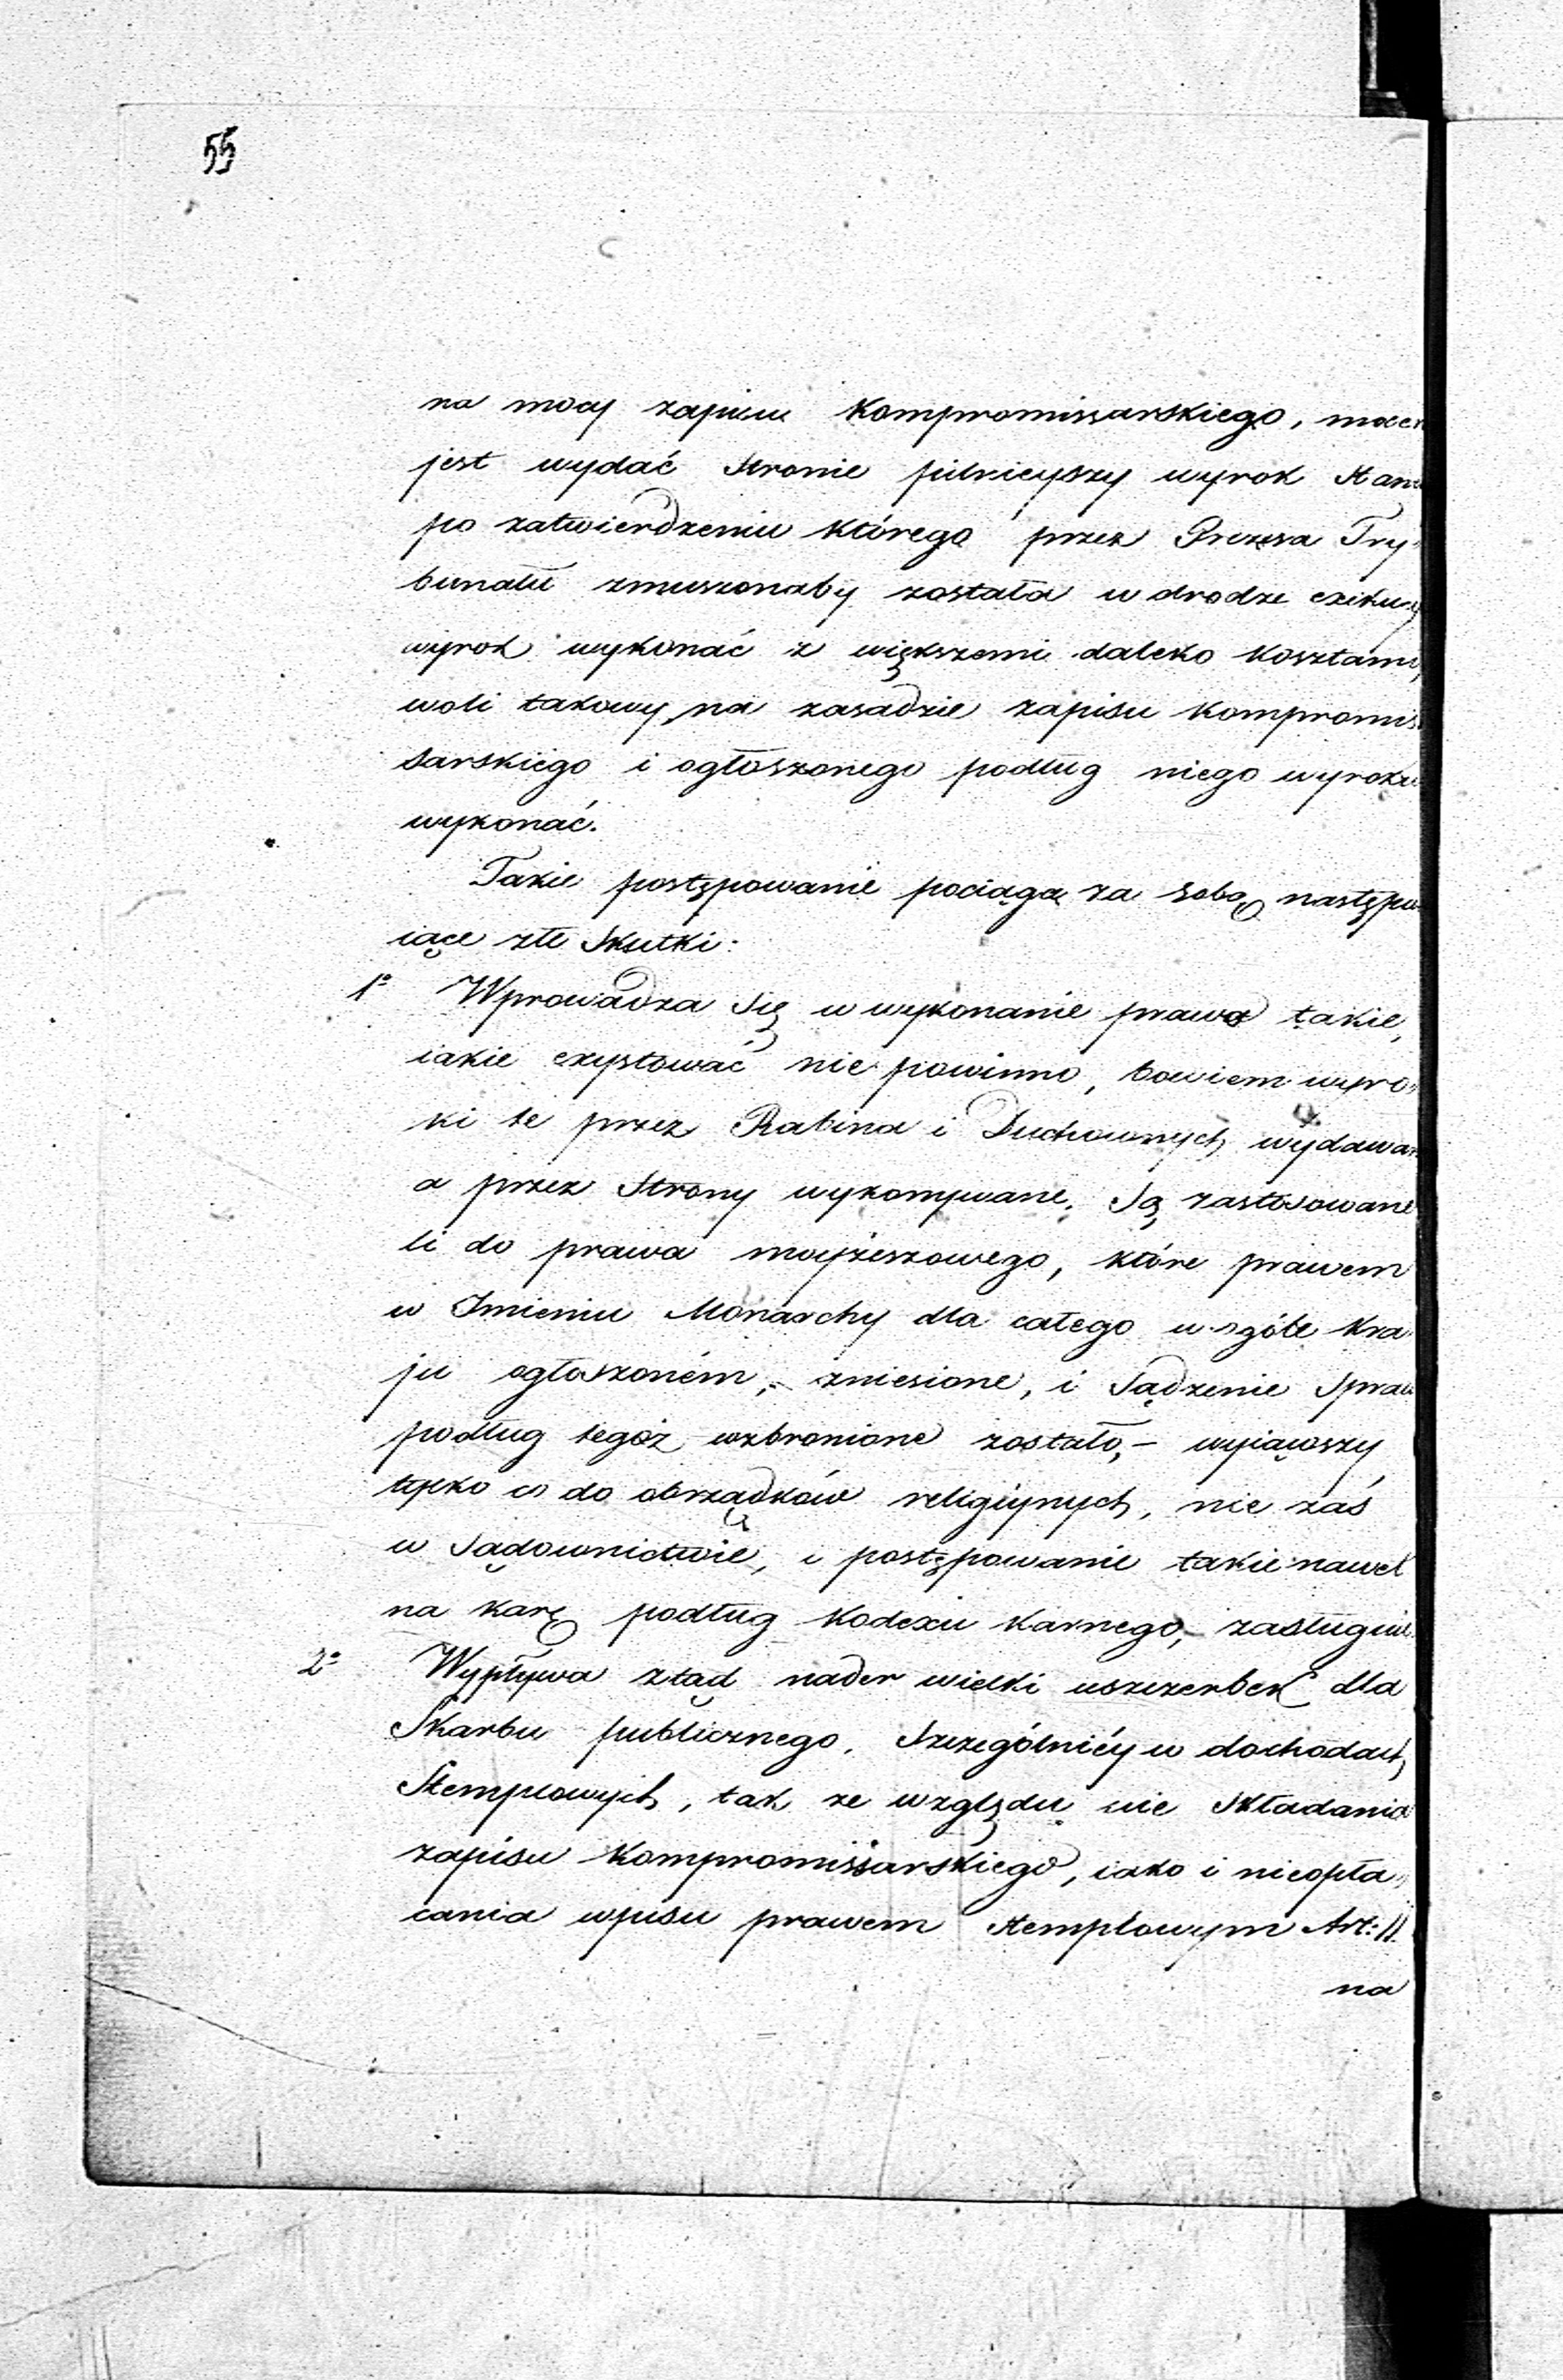 55
na mocy zapisu Kompromissarskiego, mocen
jest wydać Stronie pilnieyszy wyrok
po zatwierdzeniu którego przez Prezesa Try-
bunału zmuszonaby została w drodze exekucyi
wyrok wykonać z większemi daleko kosztami,
woli takowy na zasadzie zapisu kompromis
sarskiego i ogłoszonego podług niego wyroku
wykonać.
Takie postępowanie pociąga za sobą następu-
iące złe Skutki:
1o Wprowadza Się w wykonanie prawo takie,
iakie exystować nie powinno, bowiem wyro-
ki te przez Rabina i Duchownych wydawan
a przez Strony wykonywane, Są zastosowane
li do prawa moyżeszowego, które prawem
w Imieniu Monarchy dla całego w ogóle Kra-
ju ogłoszoném, zniesione, i Sądzenie Spraw
podług tegoż wzbronione zostało, – wyiąwszy
tylko co do obrządków religiynych, nie zaś
w Sądownictwie, i postępowanie takie nawet
na karę podług Kodexu Karnego, zasługuie.
2o Wypływa ztąd nader wielki uszczerbek dla
Skarbu publicznego, Szczególniéy w dochodach
Stemplowych, tak ze względu nie Składania
zapisu Kompromissarskiego, iako i nieopła-
cania wpisu prawem Stemplowym Art: 11.
na